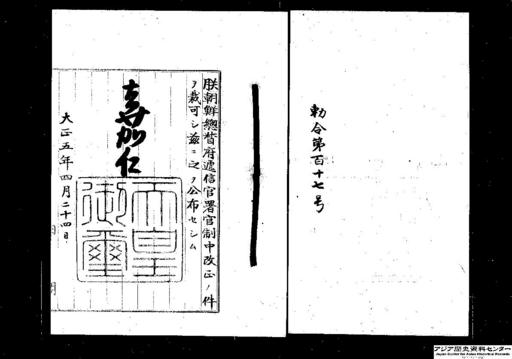 勅令第百十七号
朕朝鮮總督府遞信官署官制中改正ノ件
ヲ裁可シ茲ニ之ヲ公布セシム
嘉仁
天皇
御璽
大正五年四月二十四日
アジア歴史資料センター
Japan Center for Asian Historical Records